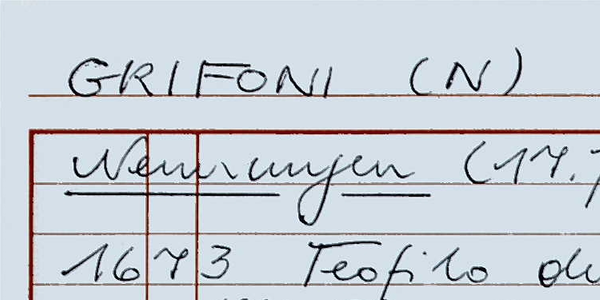 GRIFONI (N)
Nennungen (17.
1673 Teofilo de